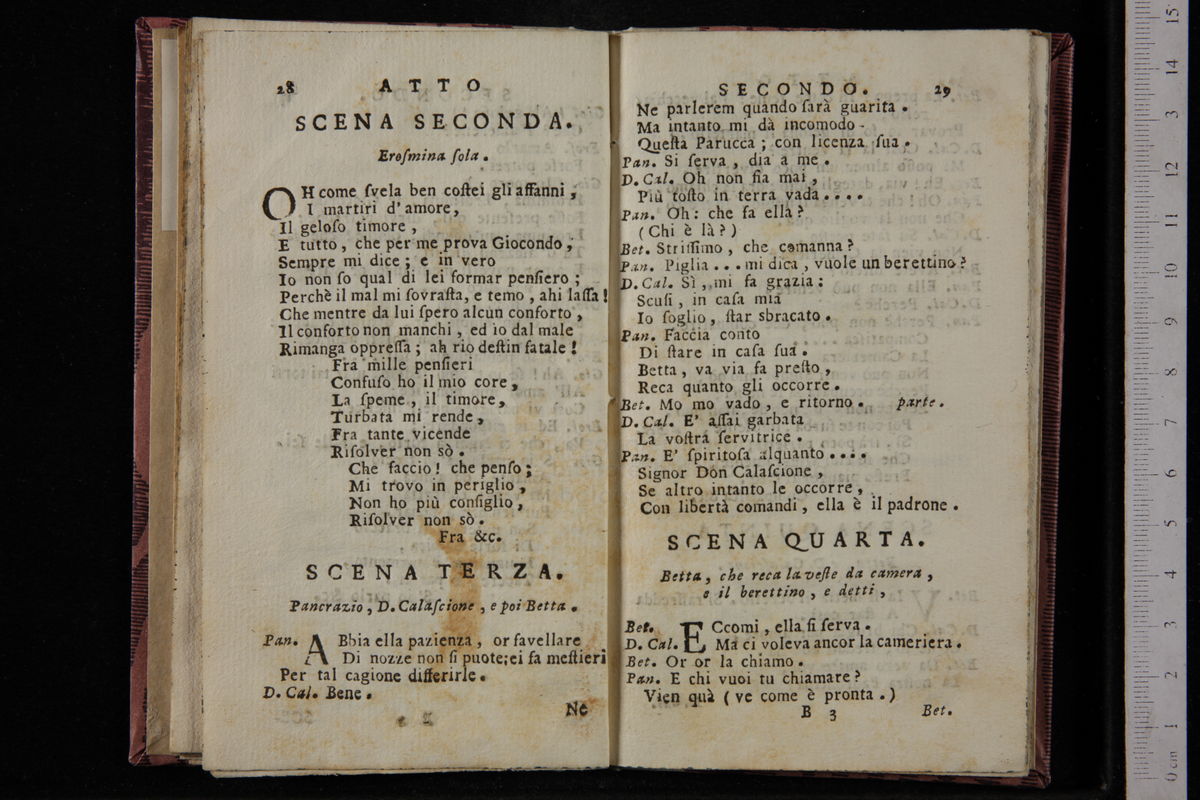 28 ATTO
SCENA SECONDA.
Erosmina ſola.
OH come ſvela ben coſtei gli affanni,
I martiri d'amore,
Il geloſo timore,
E tutto, che per me prova Giocondo,
Sempre mi dice; e in vero
Io non ſo qual di lei formar penſiero;
Perchè il mal mi ſovraſta, e temo, ahi laſſa!
Che mentre da lui ſpero alcun conforto,
Il conforto non manchi, ed io dal male
Rimanga oppreſſa; ah rio deſtin fatale!
Fra mille penſieri
Confuſo ho il mio core,
La ſpeme, il timore,
Turbata mi rende,
Fra tante vicende
Riſolver non sò.
Che faccio! che penſo;
Mi trovo in periglio,
Non ho più conſiglio,
Riſolver non sò.
Fra &c.
SCENA TERZA.
Pancrazio, D. Calaſcione, e poi Betta.
Pan. ABbia ella pazienza, or favellare
Di nozze non ſi puote; ei fa meſtieri
Per tal cagione differirle.
D. Cal. Bene.
Ne
SECONDO. 29
Ne parlerem quando ſarà guarita.
Ma intanto mi dà incomodo
Queſta Parucca; con licenza ſua.
Pan. Si ſerva, dia a me.
D. Cal. Oh non ſia mai,
Più toſto in terra vada....
Pan. Oh: che fa ella?
(Chi è là?)
Bet. Striſſimo, che comanna?
Pan. Piglia... mi dica, vuole un berettino?
D. Cal. Sì, mi fa grazia:
Scuſi, in caſa mia
Io ſoglio, ſtar sbracato.
Pan. Faccia conto
Di ſtare in caſa ſua.
Betta, va via fa preſto,
Reca quanto gli occorre.
Bet. Mo mo vado, e ritorno. parte.
D. Cal. E' aſſai garbata
La voſtra ſervitrice.
Pan. E' ſpiritoſa alquanto....
Signor Don Calaſcione,
Se altro intanto le occorre,
Con libertà comandi, ella è il padrone.
SCENA QUARTA.
Betta, che reca la veſte da camera,
e il berettino, e detti,
Bet. ECcomi, ella ſi ſerva.
D. Cal. Ma ci voleva ancor la cameriera.
Bet. Or or la chiamo.
Pan. E chi vuoi tu chiamare?
Vien quà (ve come è pronta.)
B 3 Bet.